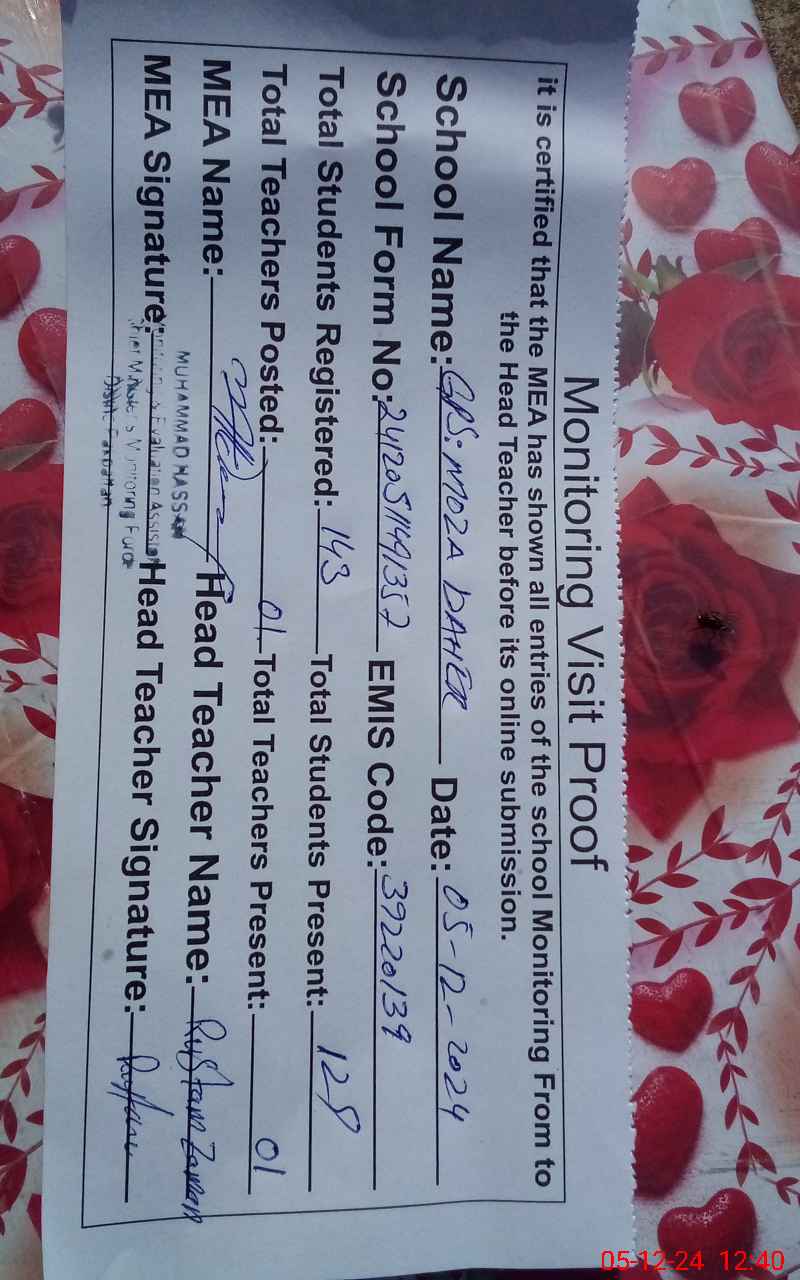 Monitoring Visit Proof
it is certified that the MEA has shown all entries of the school Monitoring From to
the Head Teacher before its online submission.
School Name: GPS: MOZA DAHER Date: 05-12-2024
School Form No: EMIS Code: 39220139
Total Students Registered: 143 Total Students Present: 128
Total Teachers Posted: 01 Total Teachers Present: 01
MEA Name: Head Teacher Name: Rustam Zaman
MUHAMMAD HASSAN
MEA Signature: Head Teacher Signature: Rustam
Monitoring & Evaluation Assistant
Chief Minister's Monitoring Force
05-12-24 12:40